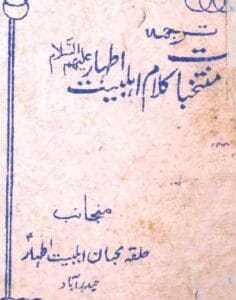 ترجمہ
منتخبات کلام اہلبیت اطہار علیہم السلام
منجانب
حلقہ محبان اہلبیت اطہارؑ
حیدرآباد